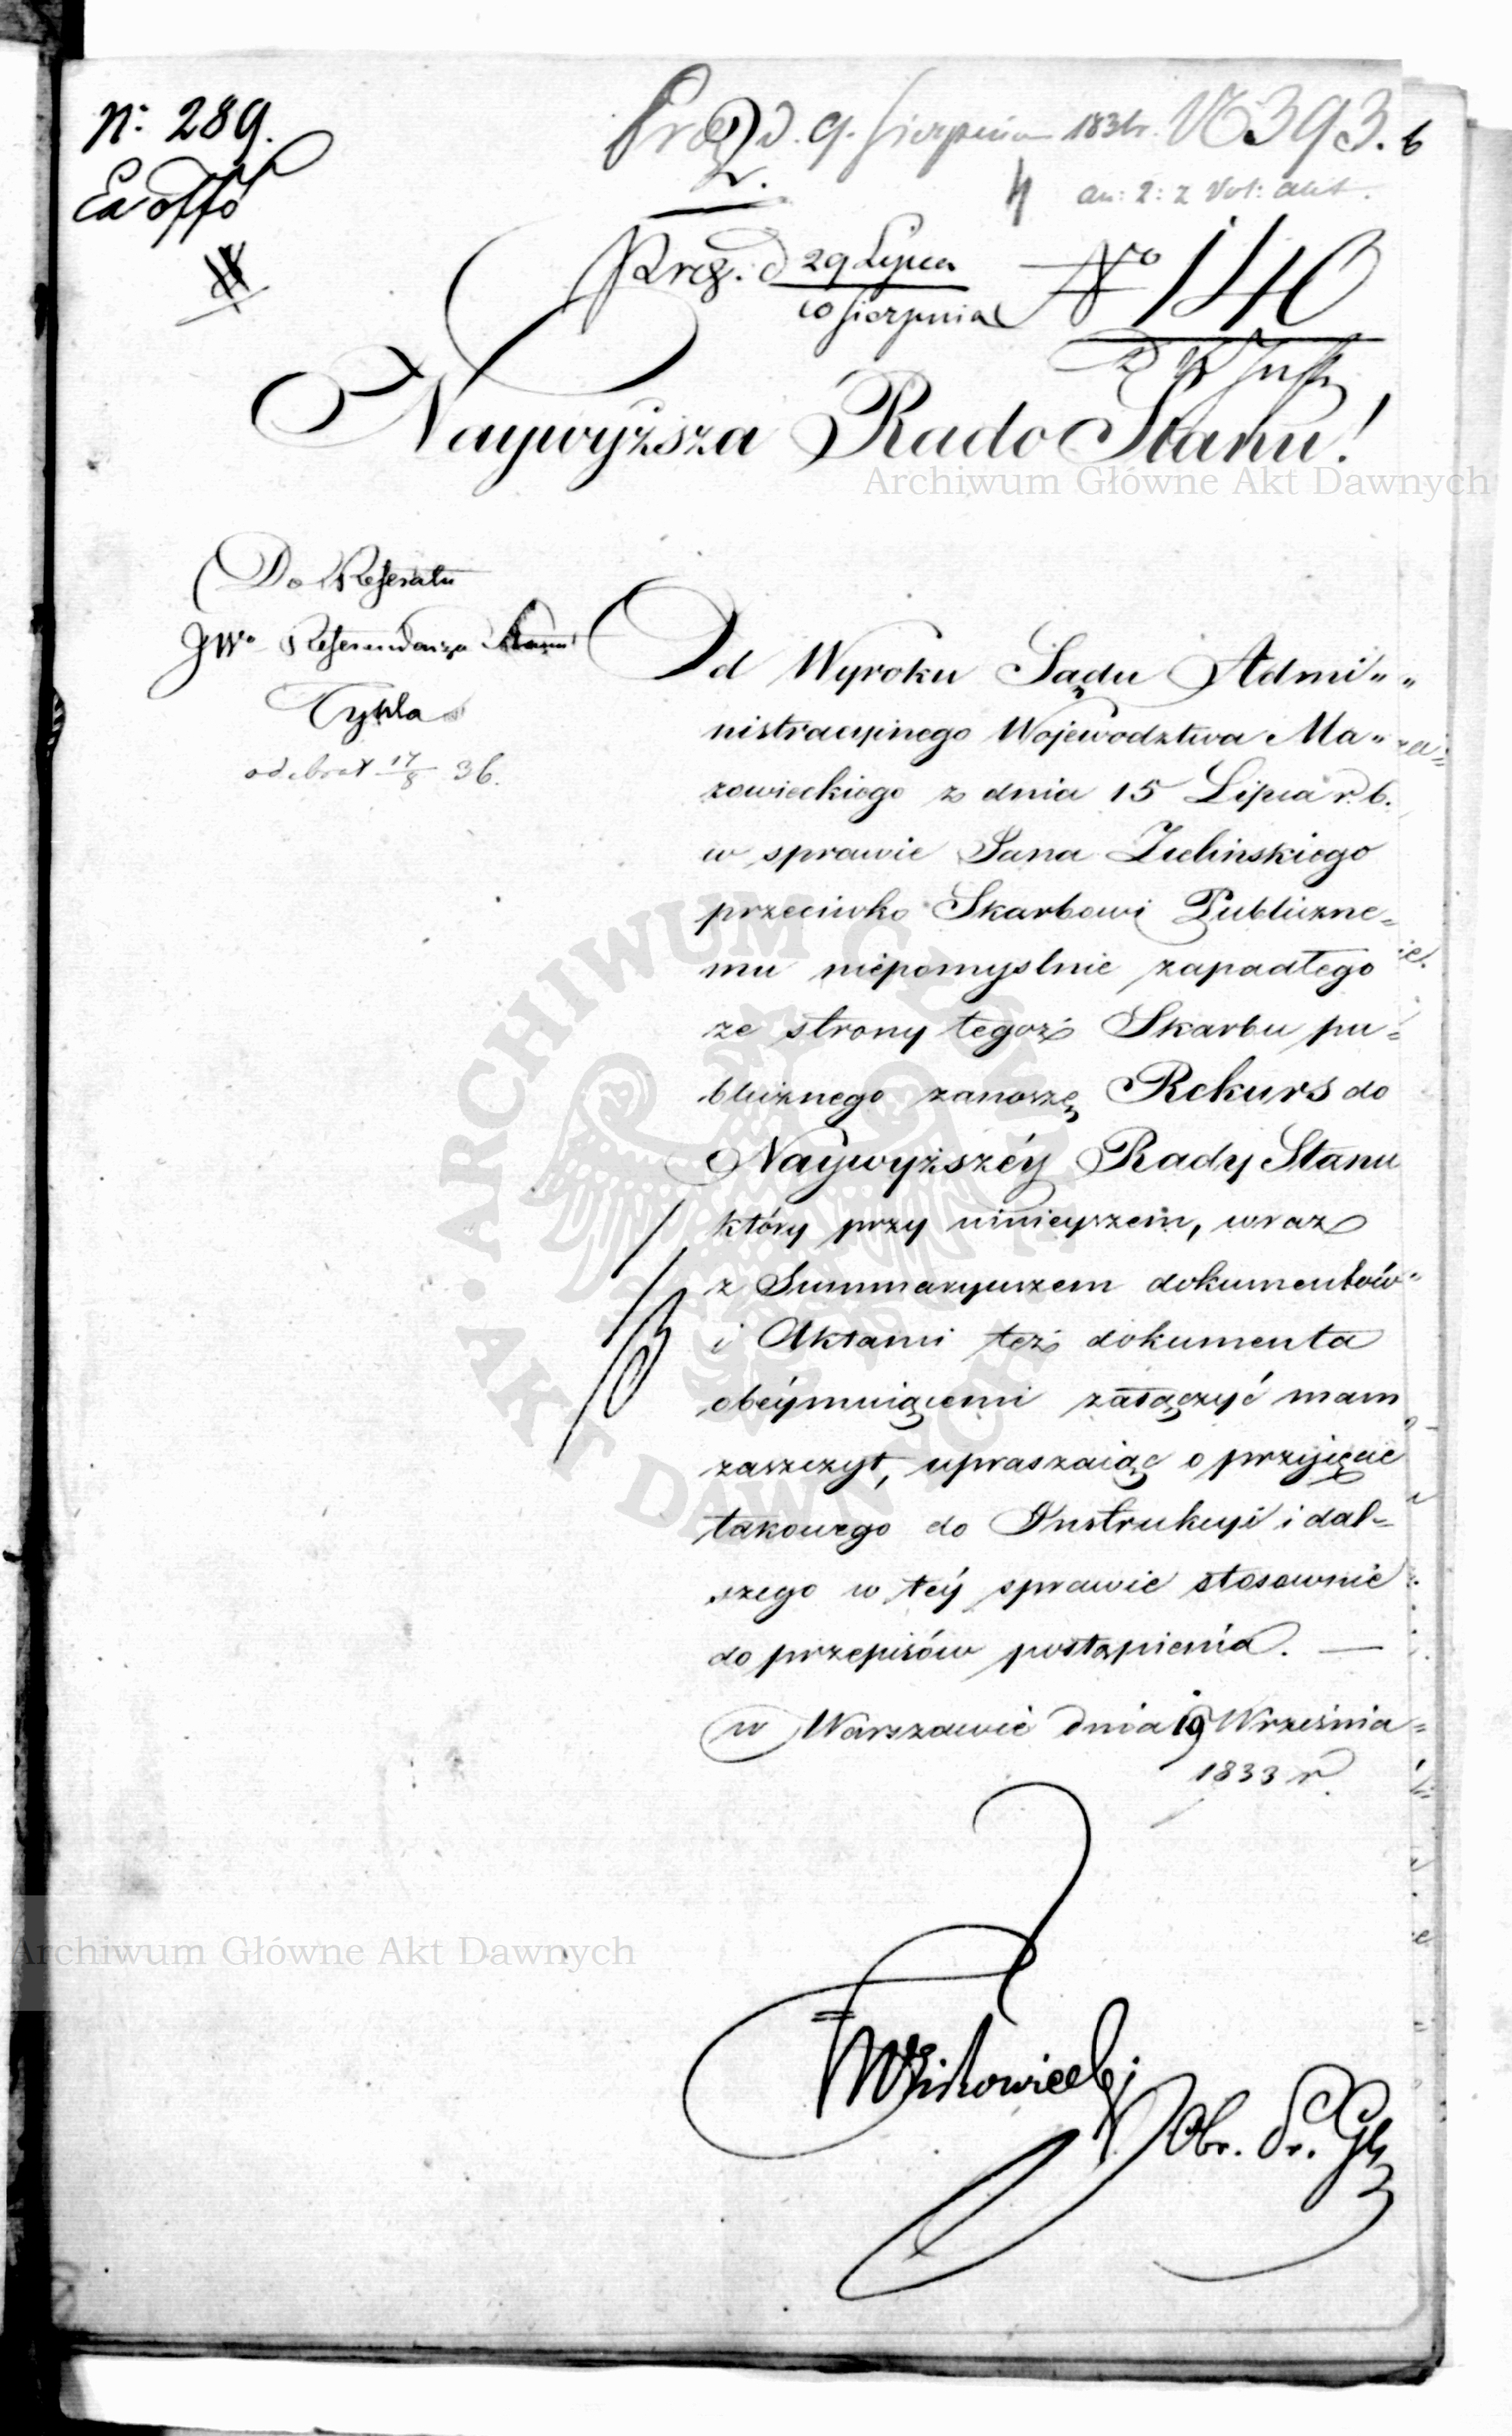 N: 289.
Ex offo
Prez d. 9. Sierpnia 183 N 393. b
4 an: 2: z Vol: akt.
Prez. d 29 Lipca
10 Sierpnia
No 140
Naywyższa Rado Stanu!
Do Referatu
JWo Referendarza Stanu
Tykla
odebrał 17/8 36.
Od Wyroku Sądu Admi„
nistracyinego Wojewodztwa Ma„
zowieckiego z dnia 15 Lipca r. b.
w sprawie Jana Zielinskiego
przeciwko Skarbowi Publiczne=
mu niepomyslnie zapadłego
ze strony tegoż Skarbu pu=
blicznego zanoszę Rekurs do
Naywyższéy Rady Stanu
który przy ninieyszem, wraz
z Summaryuszem dokumentów
i Aktami też dokumenta
obéymuiącemi załączyć mam
zaszczyt, upraszaiąc o przyięcie
takowego do Instrukcyi i dal=
szego w téy sprawie stosownie
do przepisów postąpienia. —
w Warszawie dnia 19 Września
1833 r.
Obr. Pr. Gl
Archiwum Główne Akt Dawnych
ARCHIWUM GŁÓWNE AKT DAWNYCH
Archiwum Główne Akt Dawnych